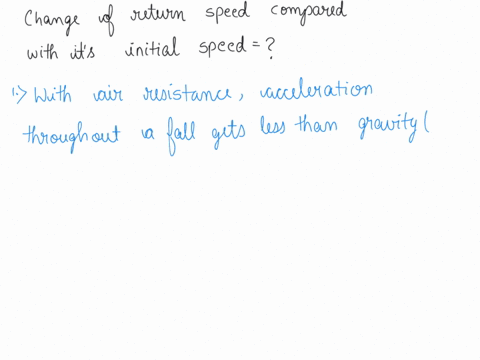 Change of return speed compared
with it's initial speed = ?
1:> With air resistance, acceleration
throughout a fall gets less than gravity (